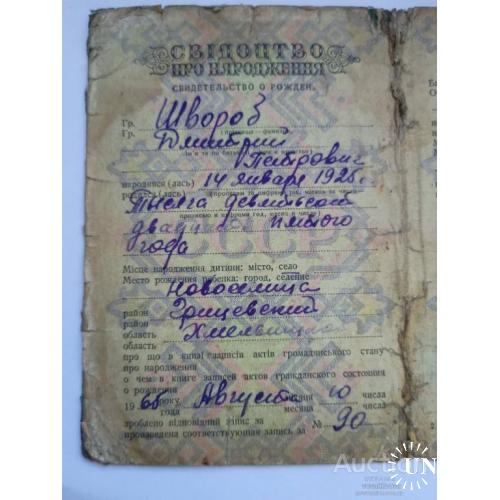 СВІДОЦТВО
ПРО НАРОДЖЕННЯ
СВИДЕТЕЛЬСТВО О РОЖДЕН
Гр. Шворов
Гр. Дмитрий
Петрович
народився (лась) 14 января 1925 г.
тысяча девятьсот
двадцать пятого
года
СССР
Місце народження дитини: місто, село
Место рождения ребенка: город, селение
Новоселица
район Грицевский
район
область Хмельницкая
область
про що в книзі записів актів громадянського стану
про народження
о чем в книге записей актов гражданского состояния
о рождении
1965 року Августа 10 числа
года месяца числа
зроблено відповідний запис за № 90
произведена соответствующая запись за
UN